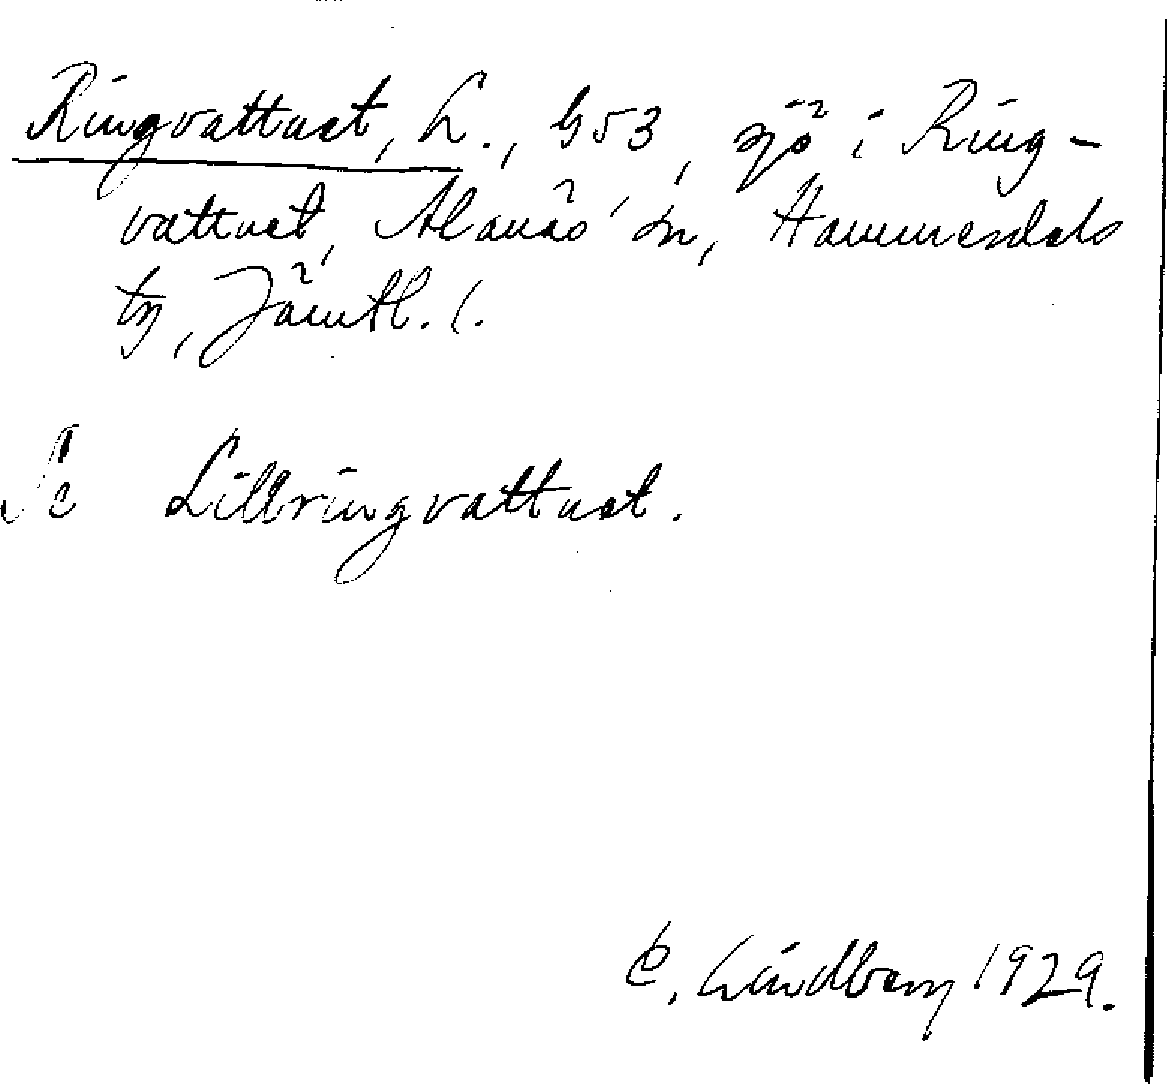 Ringvattnet, L., G53, sjö i Ring-
vattnet, Alanäs sn, Hammerdals
tg, Jämtl. l.
Se Lillringvattnet.
C. Lindberg 1929.